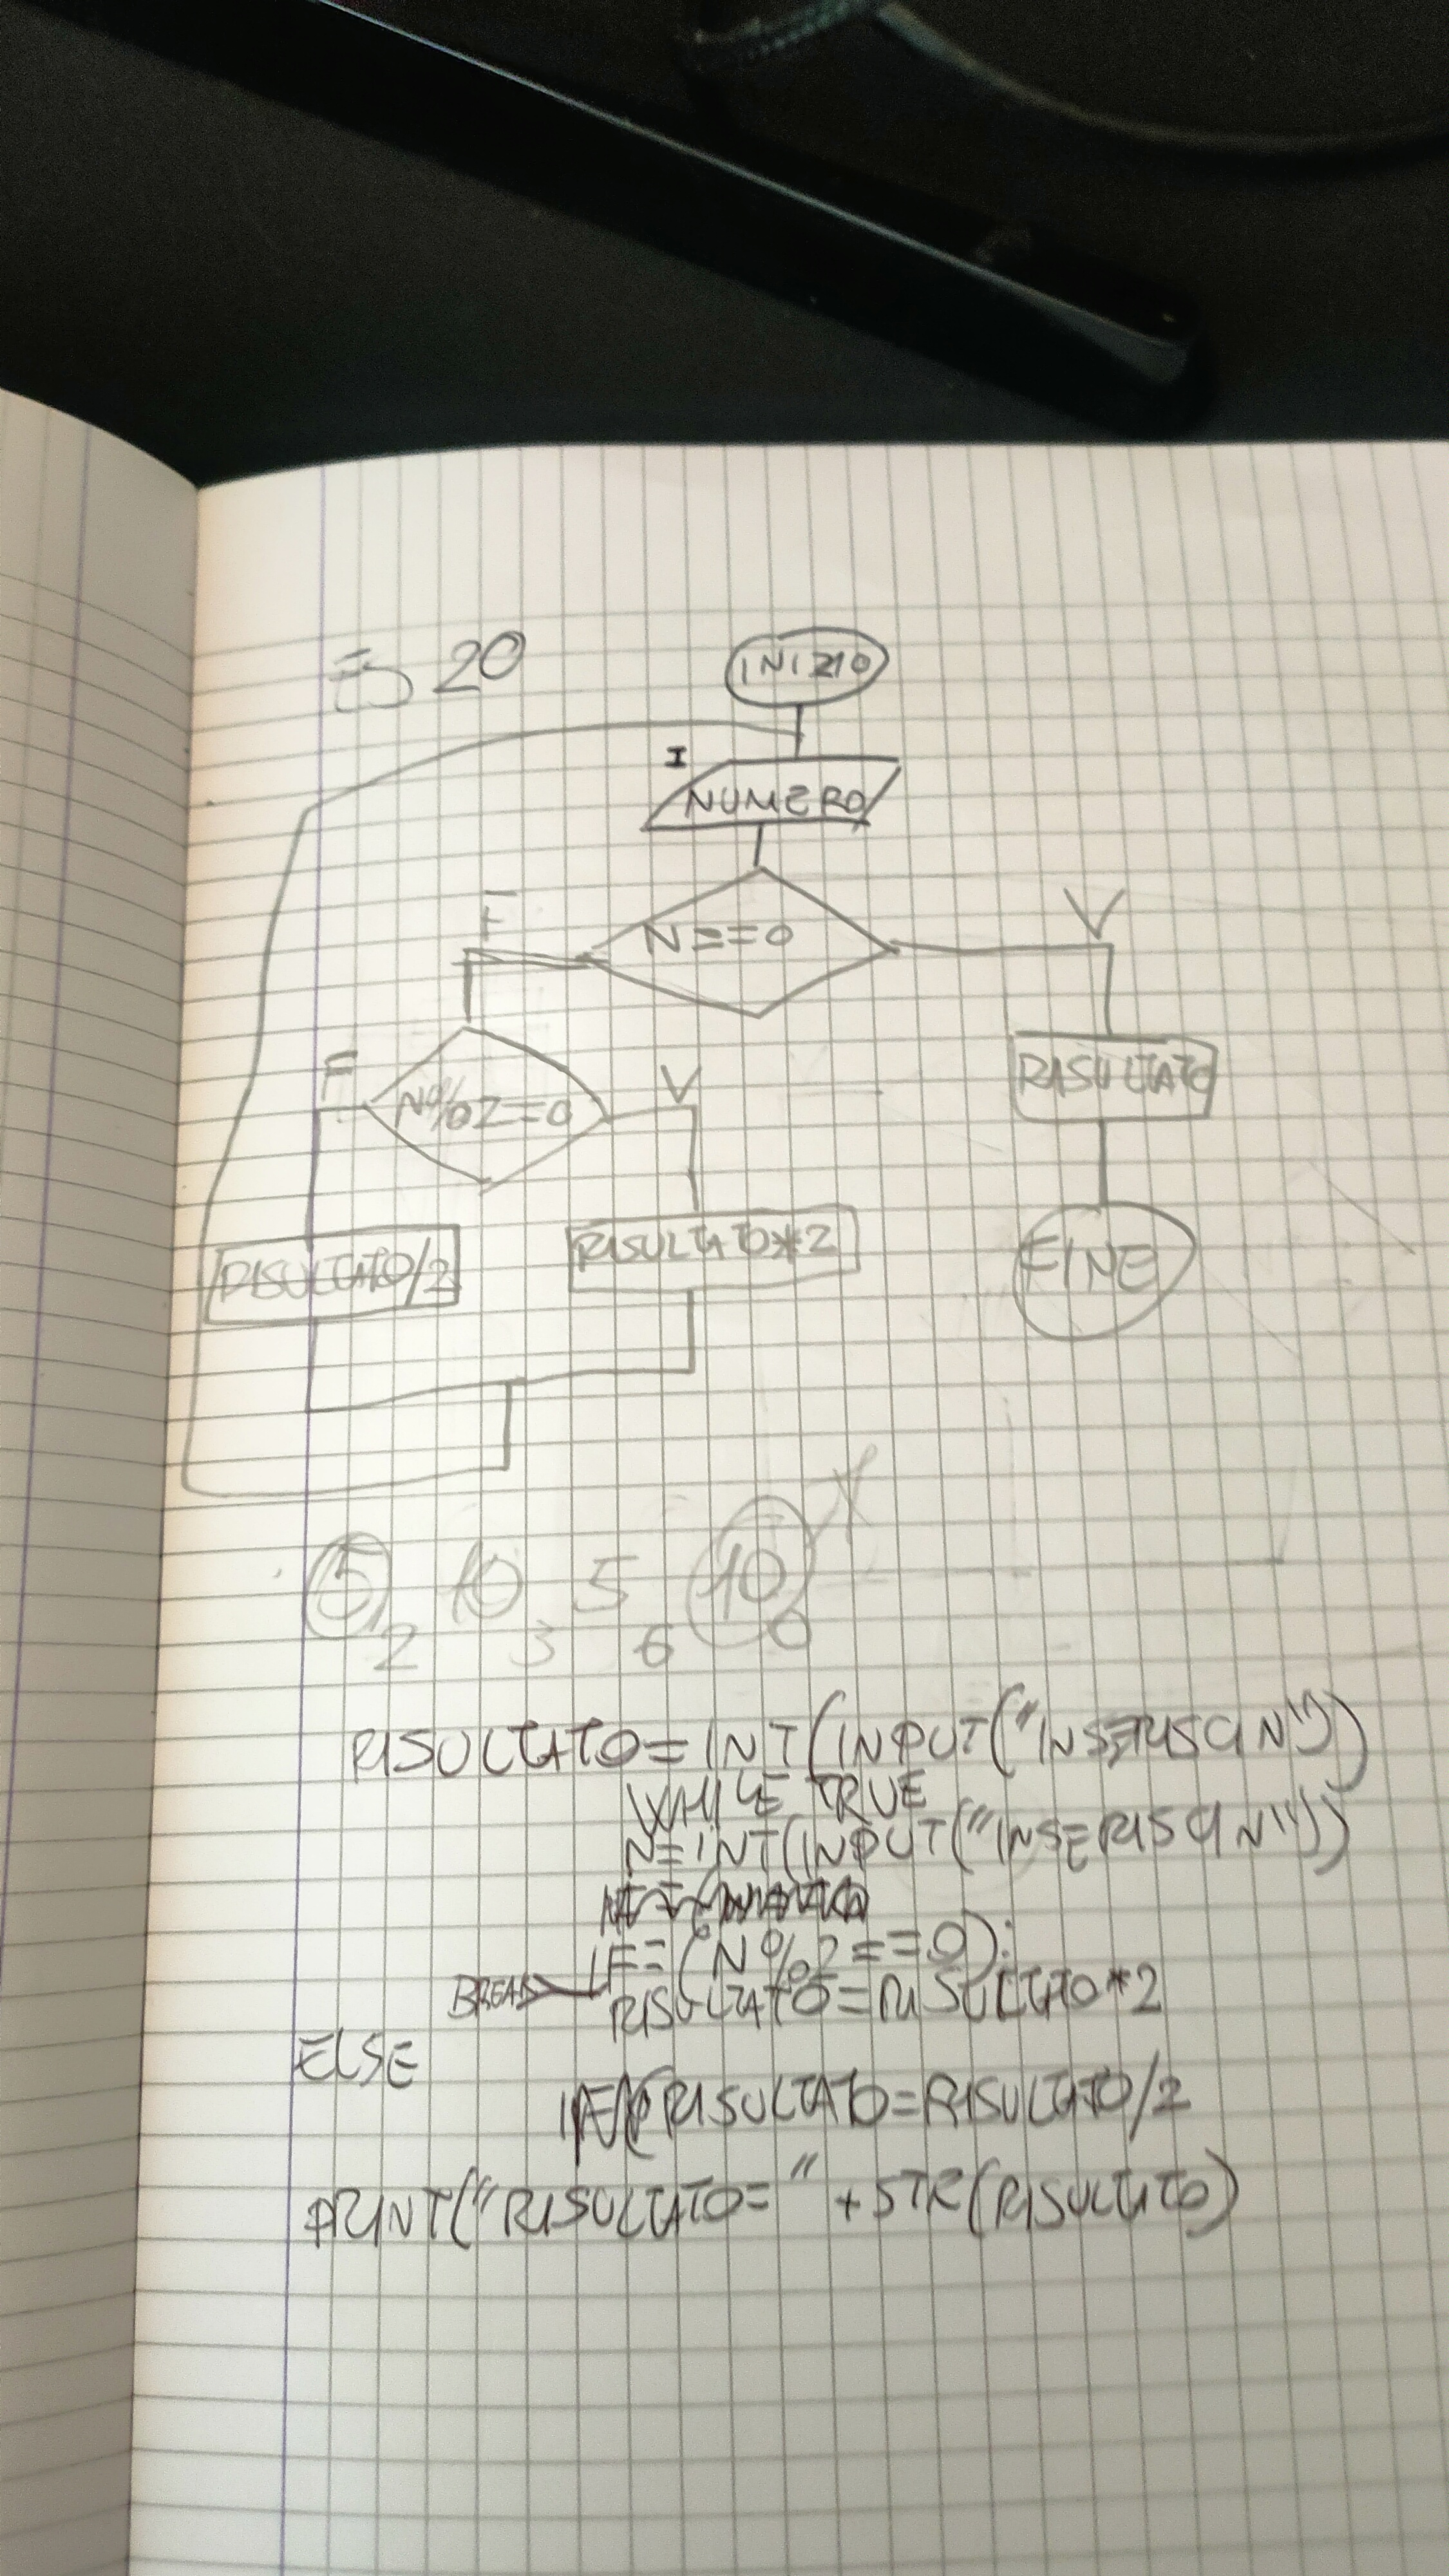 ES 20
INIZIO
I
NUMERO
F
N==0
V
F
N%2==0
V
RISULTATO
RISULTATO/2
RISULTATO*2
FINE
5 10 5 10
2 3 6 0
RISULTATO=INT(INPUT("INSERISCI N"))
WHILE TRUE
N=INT(INPUT("INSERISCI N"))
IF=(N%2==0):
BREAK
RISULTATO=RISULTATO*2
ELSE
RISULTATO=RISULTATO/2
PRINT("RISULTATO=" +STR(RISULTATO)